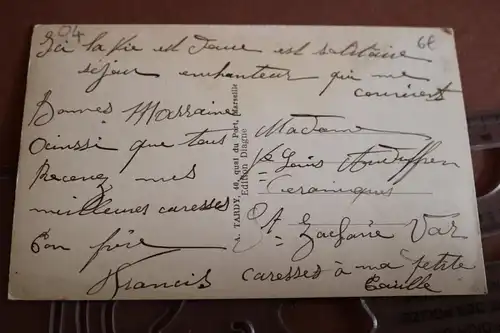 04
6€
Ici la vie est douce est salutaire
séjour enchanteur qui me
convient
Bonnes Marraine
ainssi que tous
Recevez mes
meilleures caresses
Ton frère
Francis
TARDY, 40, quai du Port, Marseille
Edition Diagne
Madame
Louis Audiffren
Ceramiques
St Zacharie Var
caresses à ma petite